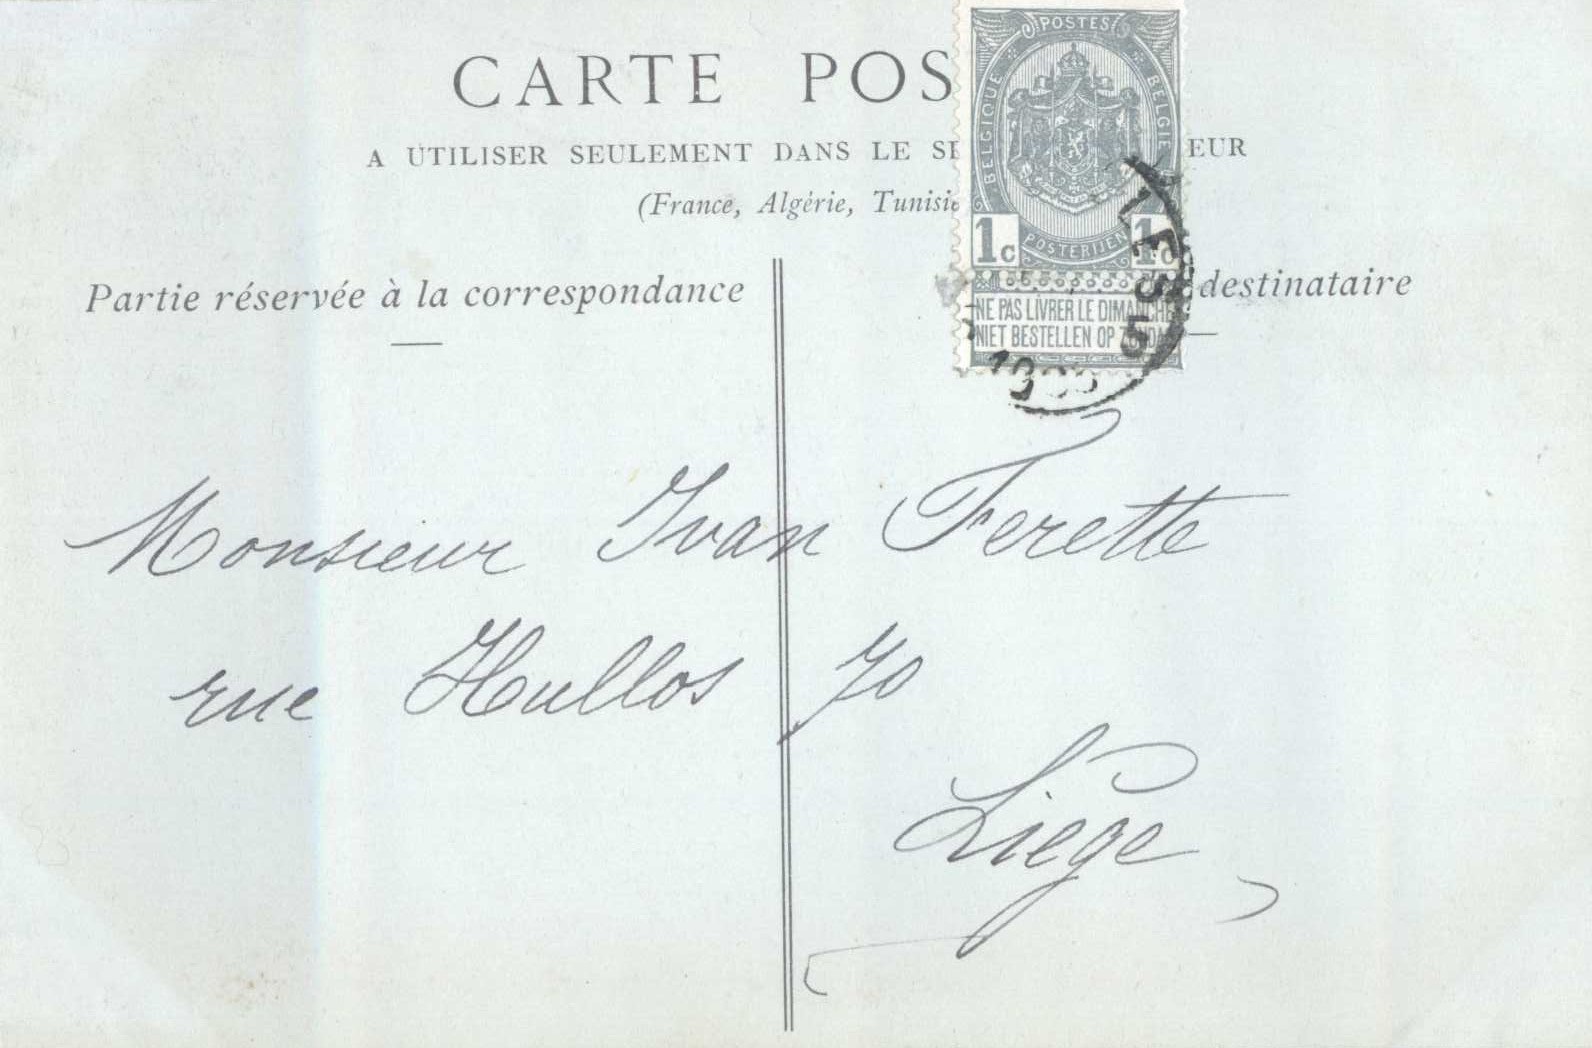 CARTE POS
POSTES
BELGIQUE
BELGIE
A UTILISER SEULEMENT DANS LE SE EUR
(France, Algérie, Tunisie
1c 1c
POSTERIJEN
Partie réservée à la correspondance
destinataire
NE PAS LIVRER LE DIMANCHE
NIET BESTELLEN OP ZONDAG
Monsieur Ivan Ferette
rue Hullos 70
Liège